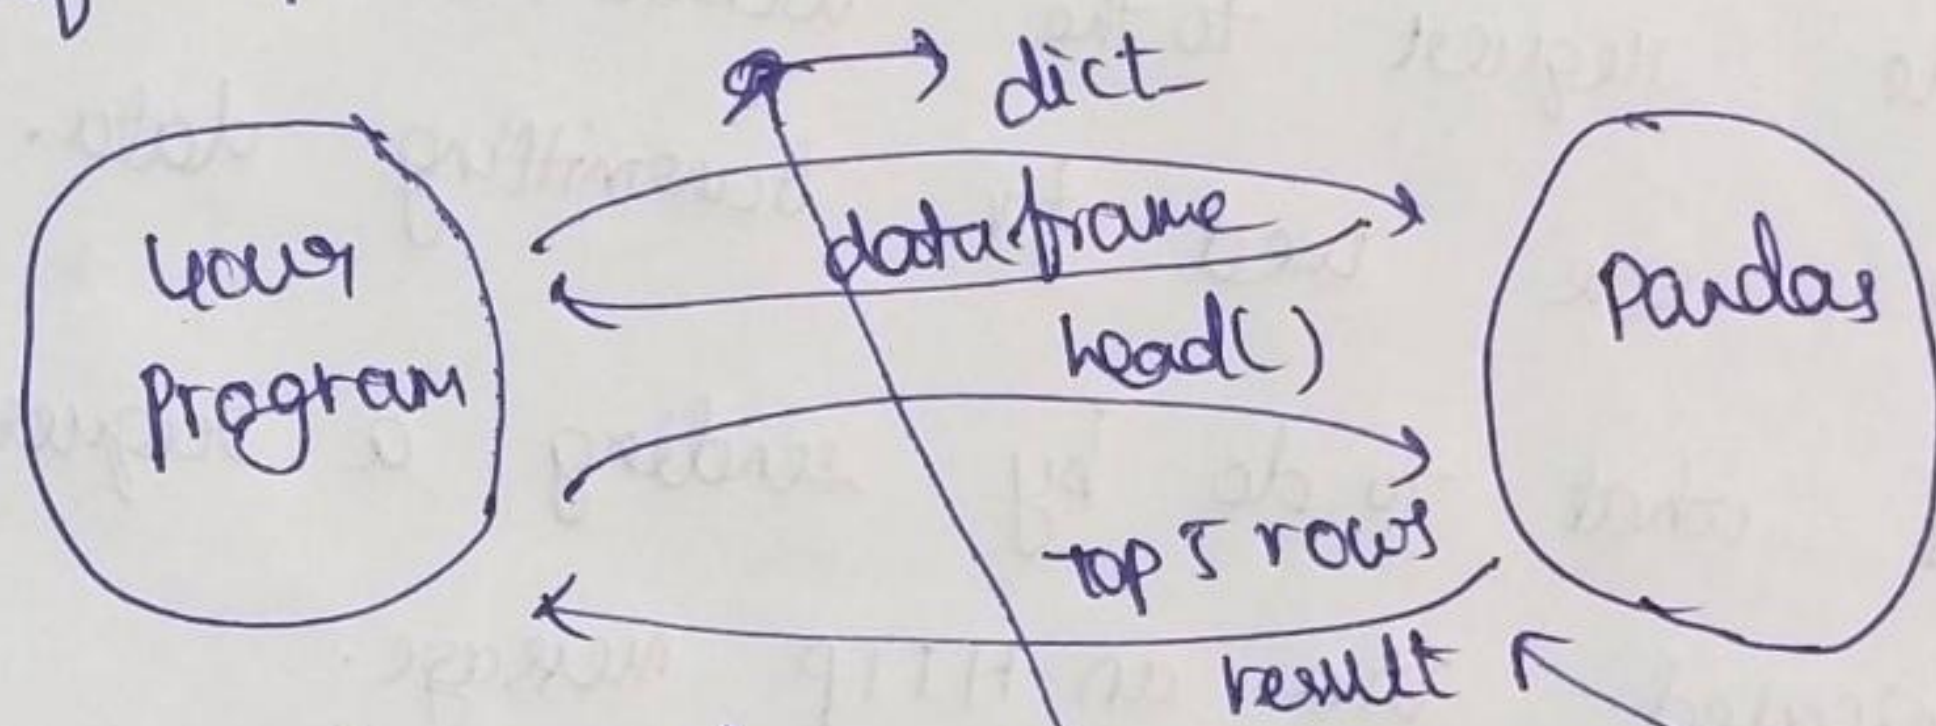 dict
your
program
dataframe
head()
top 5 rows
result
Pandas